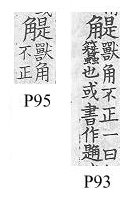 䚣
獸角
不正
P95
䚣
獸角不正一曰
也或書作
P93